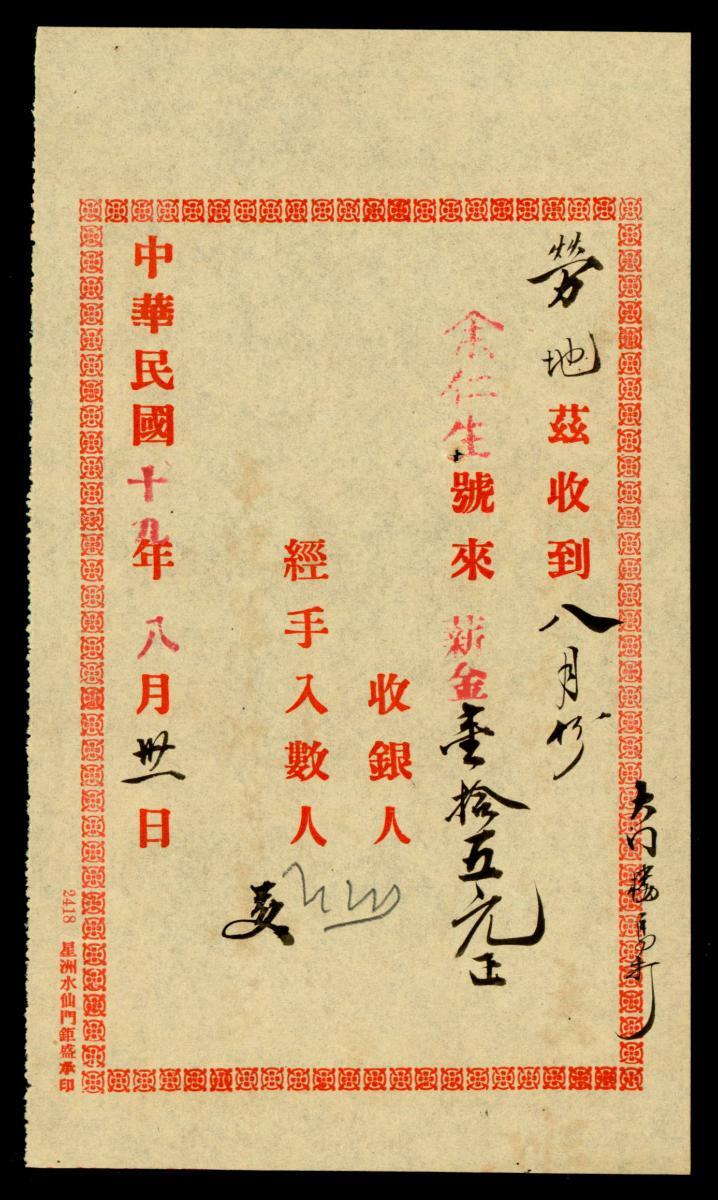 勞地茲收到八月份
余仁生號來薪金壹拾五元正
收銀人
經手入數人
中華民國十九年八月卅一日
2418 星洲水仙門鉅盛承印